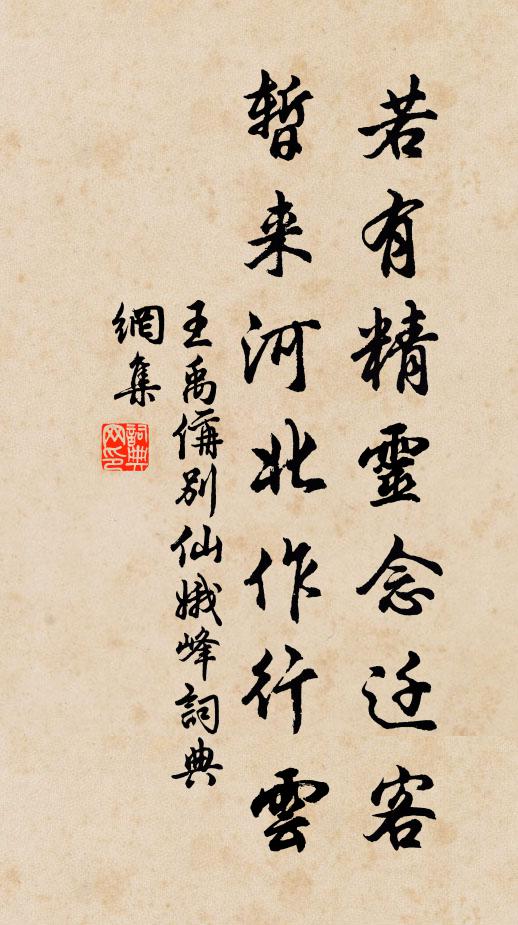 若有精靈念迁客
暂来河北作行雲
王禹偁別仙娥峰詞典
網集
詞典
网印